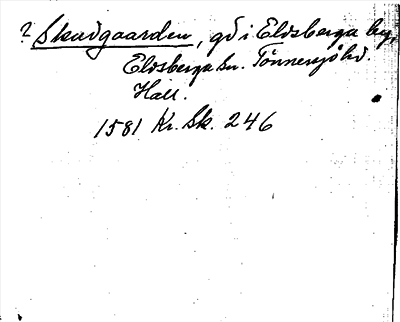 ? Skadgaarden, gd i Eldsberga by,
Eldsberga sn. Tönnersjö hd.
Hall.
1581 Kr. Sk. 246